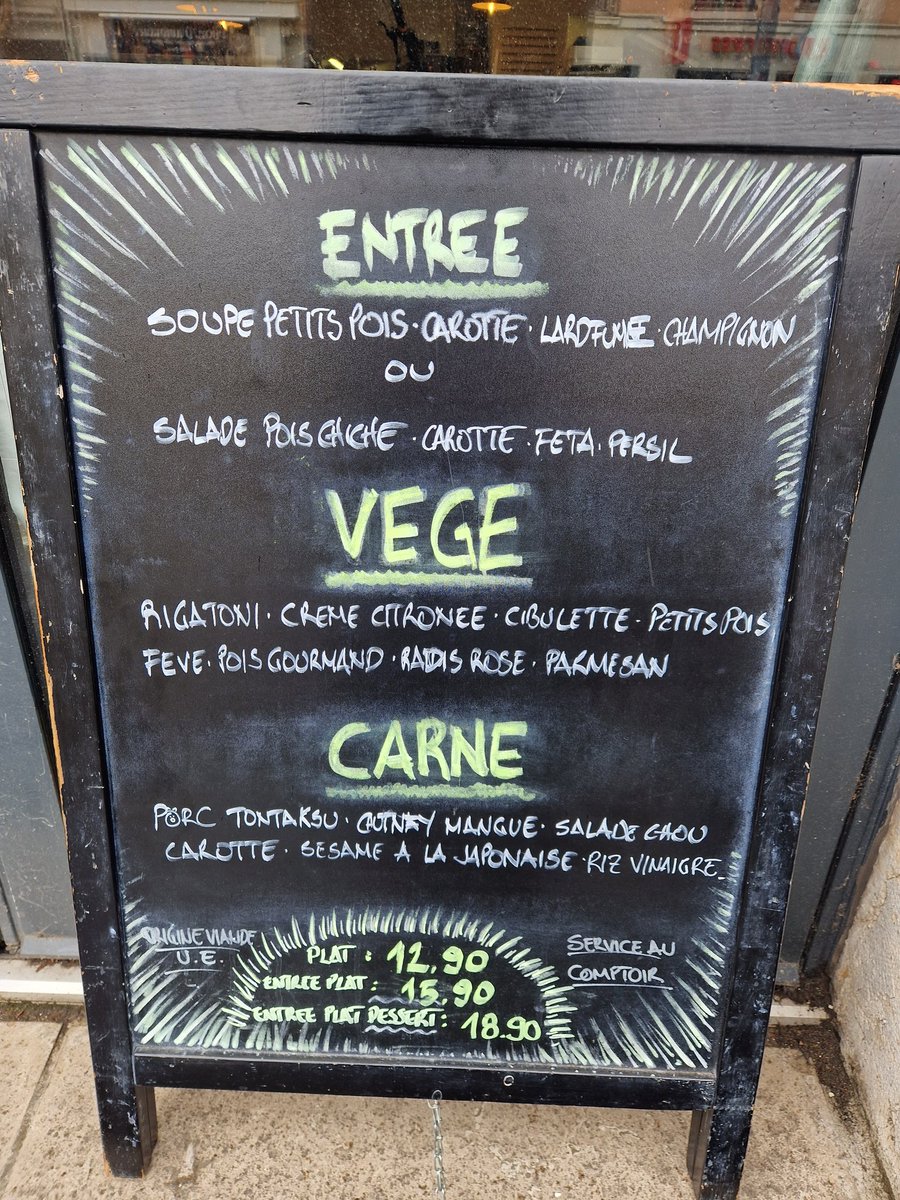 ENTREE
SOUPE PETITS POIS · CAROTTE · LARD FUMEE · CHAMPIGNON
OU
SALADE POIS CHICHE · CAROTTE · FETA · PERSIL
VEGE
RIGATONI · CREME CITRONEE · CIBULETTE · PETITS POIS
FEVE · POIS GOURMAND · RADIS ROSE · PARMESAN
CARNE
PORC TONTAKSU · CHUTNEY MANGUE · SALADE CHOU
CAROTTE · SESAME A LA JAPONAISE · RIZ VINAIGRE
ORIGINE VIANDE
U.E.
PLAT : 12,90
ENTREE PLAT : 15,90
ENTREE PLAT DESSERT : 18.90
SERVICE AU
COMPTOIR